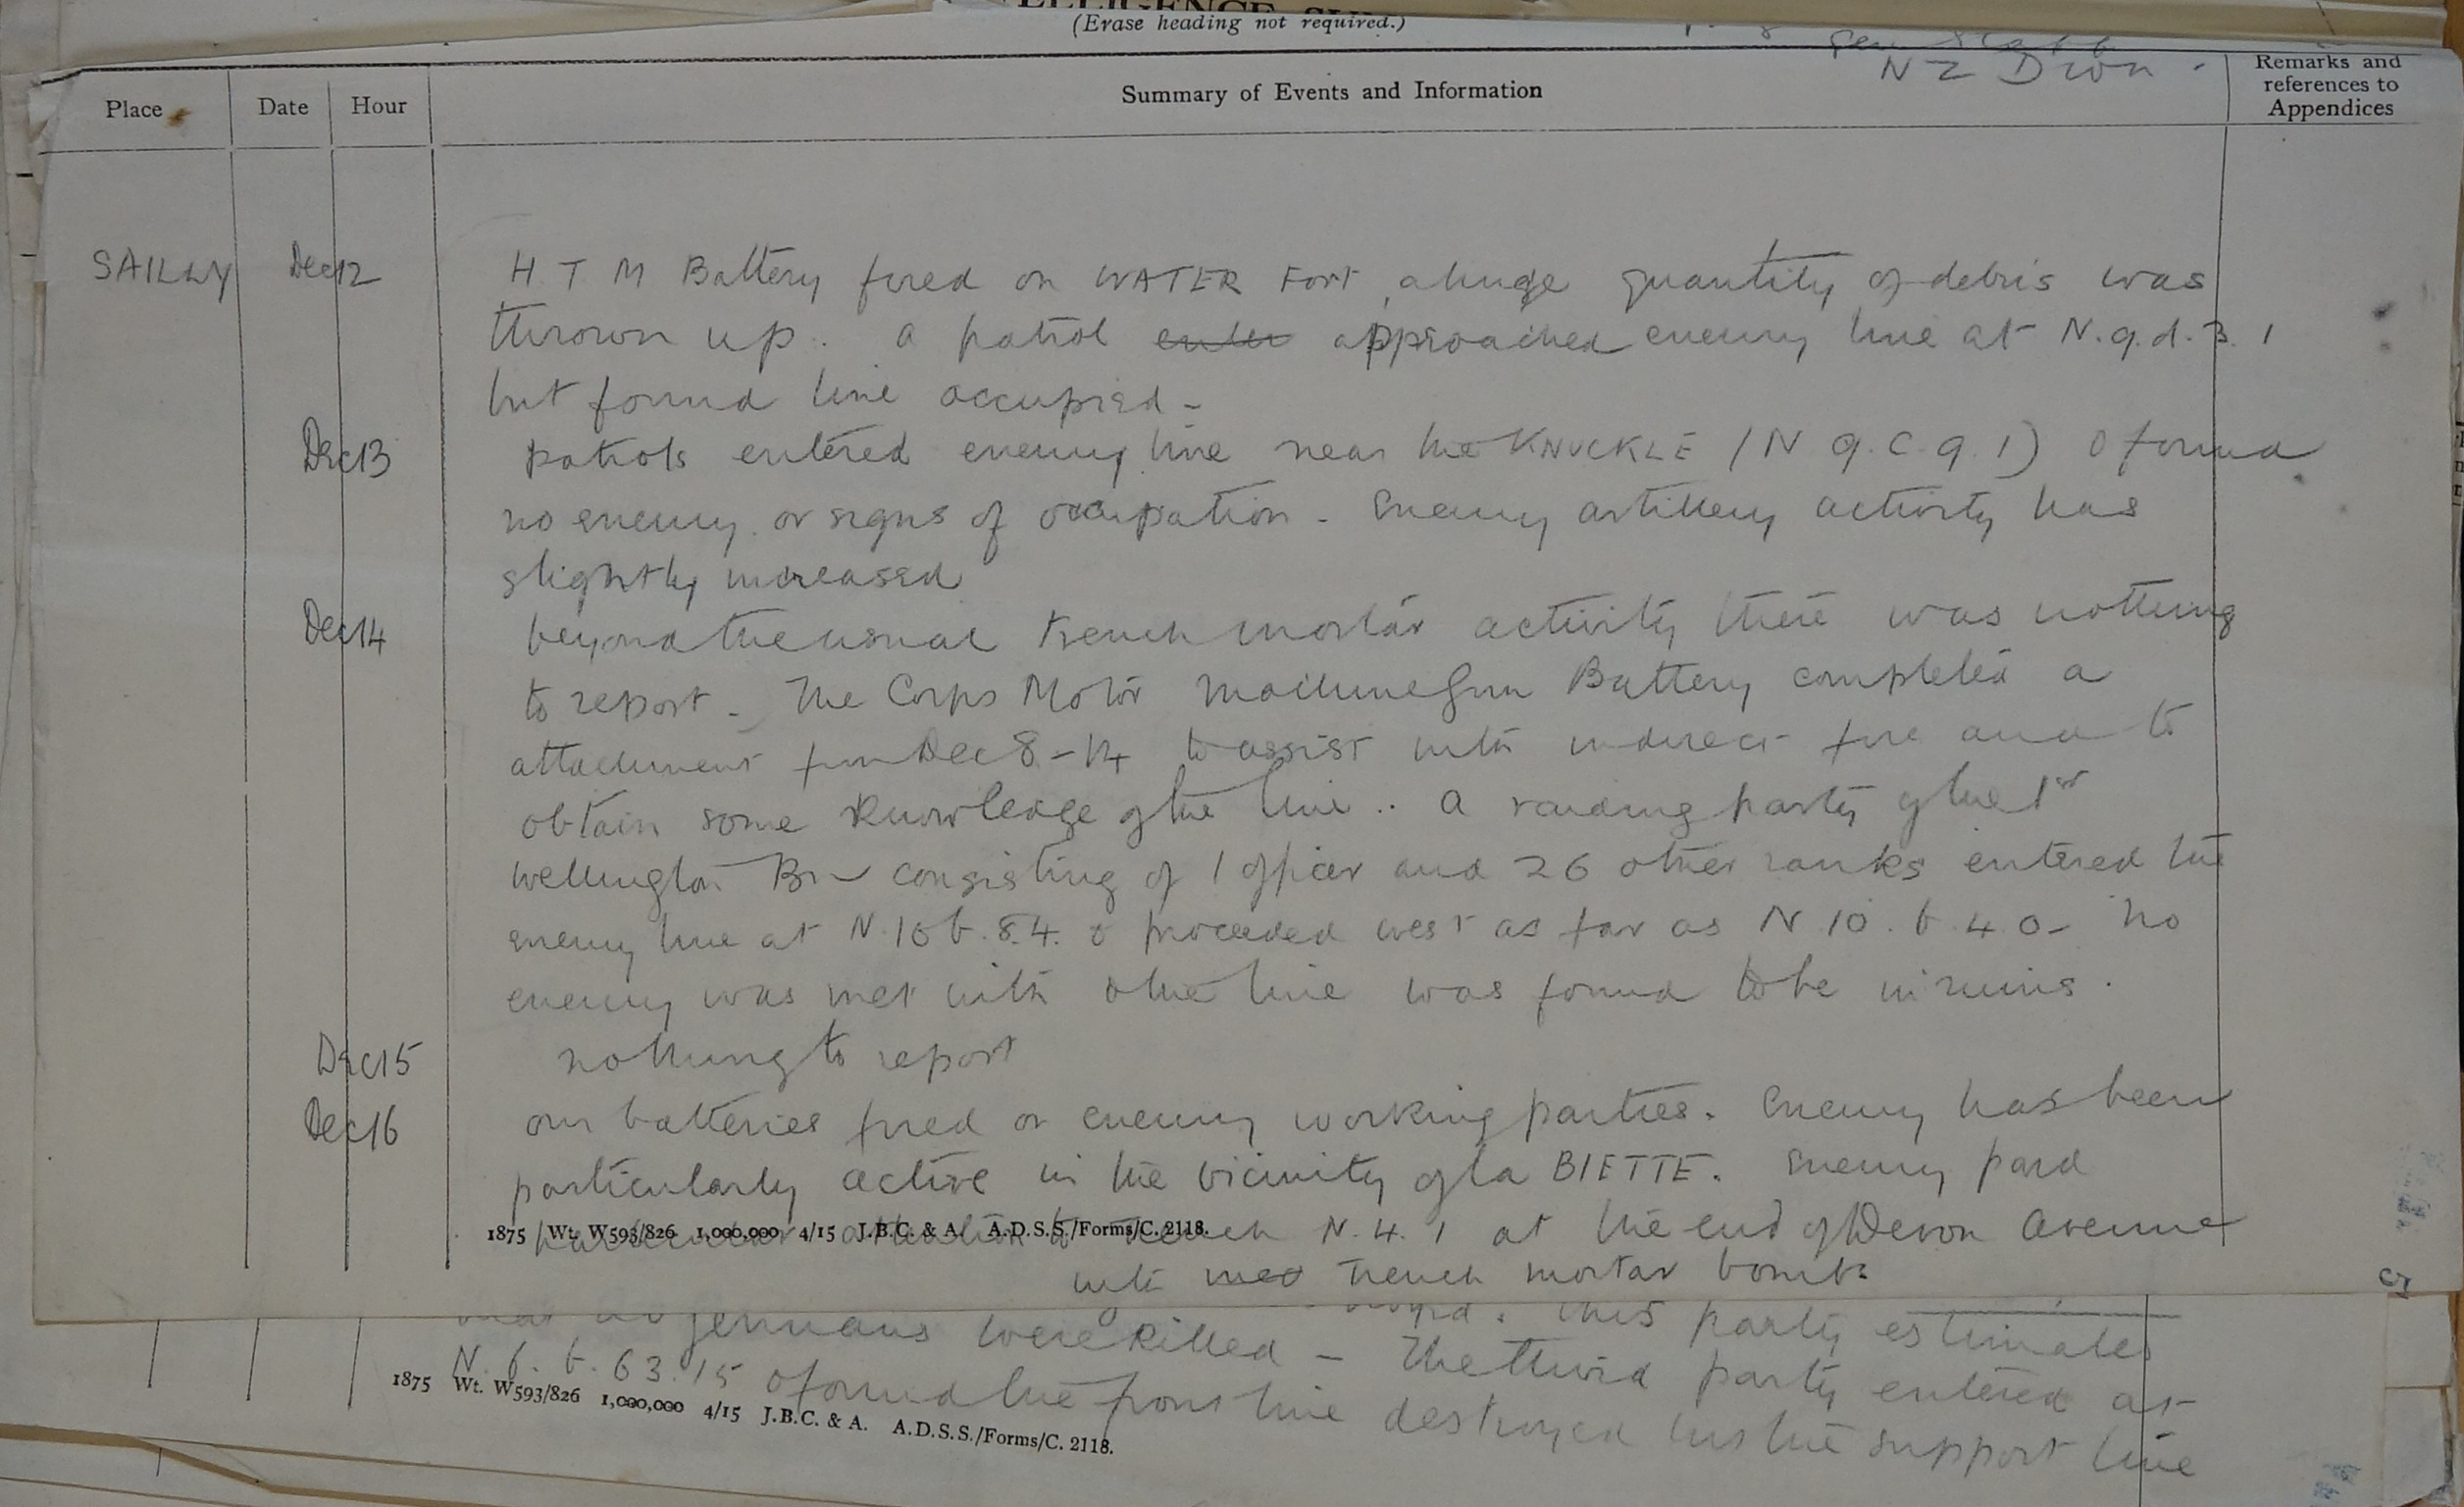 (Erase heading not required.)
Gen Staff
N Z Divn.
Place Date Hour Summary of Events and Information Remarks and references to Appendices
SAILLY Dec 12 H T M Battery fired on WATER FORT, a huge quantity of debris was
thrown up. A patrol enter approached enemy line at N.9.d.3.1
but found line occupied -
Dec 13 Patrols entered enemy line near the KNUCKLE (N 9.C.9.1) & found
no enemy or signs of occupation. Enemy artillery activity has
slightly increased
Dec 14 beyond the usual trench mortar activity there was nothing
to report - The Corps Motor Machine Gun Battery completed a
attachment from Dec 8-14 to assist with indirect fire and to
obtain some knowledge of the line.. A raiding party of the 1st
Wellington Bn consisting of 1 officer and 26 other ranks entered the
enemy line at N.10 b.8.4. & proceeded west as far as N 10.b.4.0- No
enemy was met with & the line was found to be in ruins.
Dec 15 nothing to report
Dec 16 our batteries fired on enemy working parties. Enemy has been
particularly active in the vicinity of la BIETTE. Enemy paid
particular attention to trench N.4.1 at the end of Devon Avenue
1875 Wt. W593/826 1,000,000 4/15 J.B.C. & A. A.D.S.S./Forms/C. 2118.
with med trench mortar bombs
Germans were killed - This party estimates
N.6.b.63.15 & found the front line destroyed but the support line
The third party entered at
1875 Wt. W593/826 1,000,000 4/15 J.B.C. & A. A.D.S.S./Forms/C. 2118.